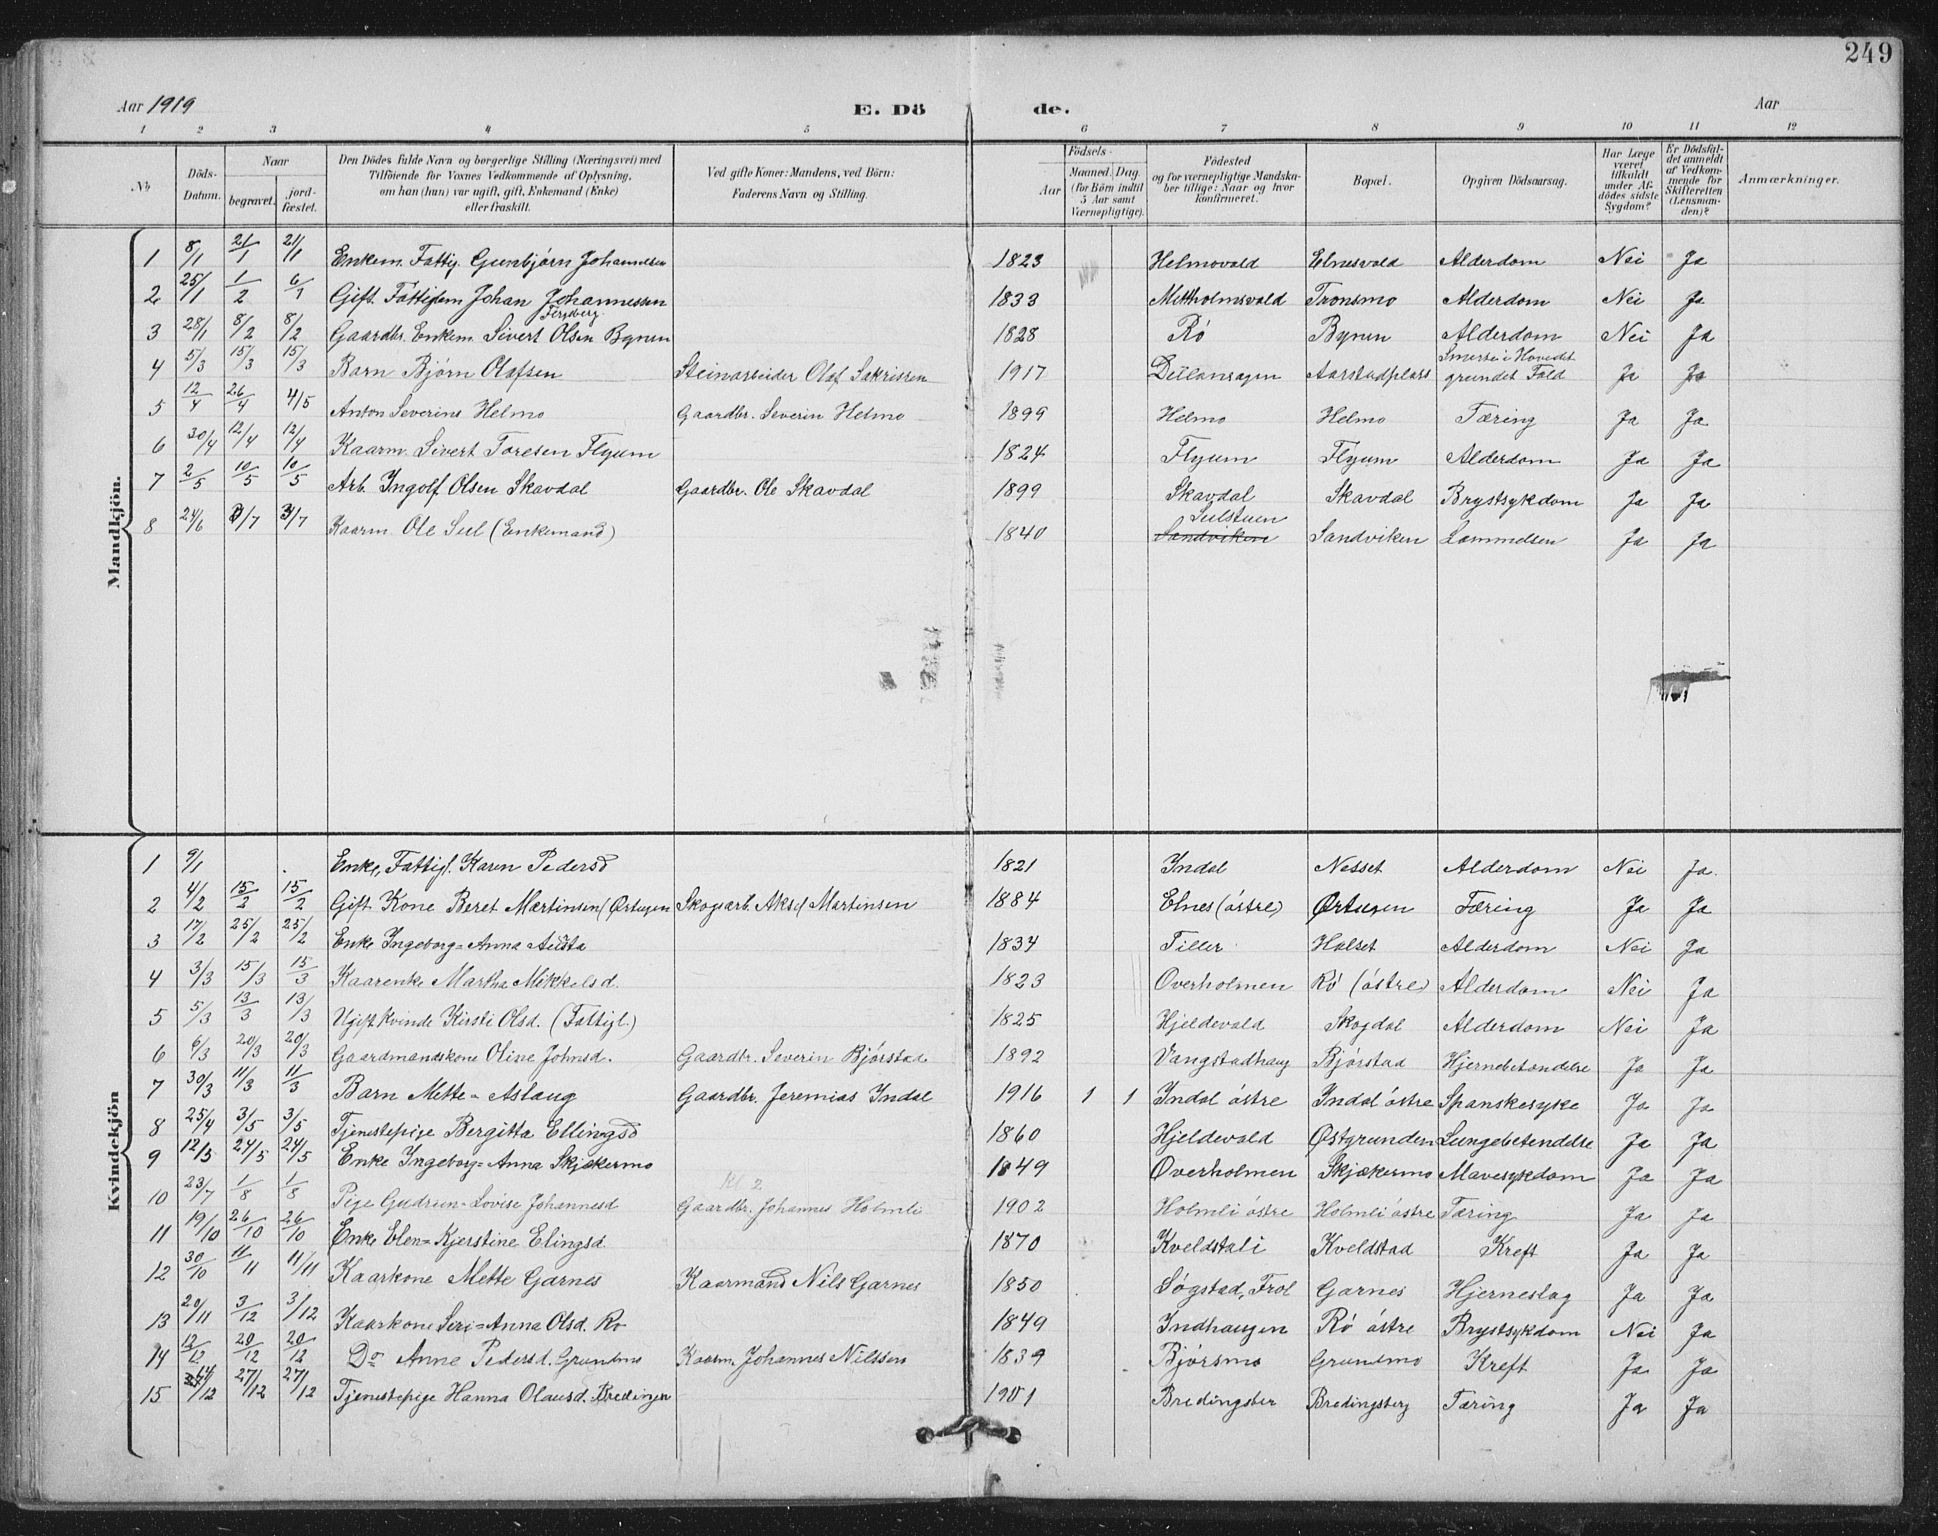 249
Aar 1919 E. Dö de. Aar
1 2 3 4 5 6 7 8 9 10 11 12
No. Döds-Datum. Naar begravet. jord-fæstet. Den Dödes fulde Navn og borgerlige Stilling (Næringsvei) med Tilföiende for Voxnes Vedkommende af Oplysning, om han (hun) var ugift, gift, Enkemand (Enke) eller fraskilt. Ved gifte Koner: Mandens, ved Börn: Faderens Navn og Stilling. Födsels- Aar Maaned. Dag. (for Börn indtil 5 Aar samt Værnepligtige). Födested og for værnepligtige Mandskaber tillige: Naar og hvor konfirmeret. Bopæl. Opgiven Dödsaarsag. Har Læge været tilkaldt under Afdödes sidste Sygdom? Er Dödsfaldet anmeldt af Vedkommende for Skifteretten (Lensmanden)? Anmærkninger.
Mandkjön.
1 8/1 21/1 21/1 Enkem. Fattig. Gunbjörn Johannesen 1823 Helmovald Elnesvald Alderdom Nei Ja
2 25/1 1/2 6/1 Gift. Fattiglem Johan Johannessen 1833 Mittholmsvald Tronsmo Alderdom Nei Ja
3 28/1 8/2 8/2 Gaardbr. Enkem. Sivert Olsen Bynen 1828 Rö Bynen Alderdom Nei Ja
4 5/3 15/3 15/3 Barn Björn Olafsen Steinarbeider Olaf Sakrissen 1917 Aarstadplads Smerte i Hovedet grundet Fald Ja Ja
5 12/4 26/4 4/5 Anton Severins Helmo Gaardbr. Severin Helmo 1899 Helmo Helmo Tæring Ja Ja
6 30/4 12/4 12/4 Kaarm. Sivert Toresen Flyum 1824 Flyum Flyum Alderdom Ja Ja
7 2/5 10/5 10/5 Arb. Ingolf Olsen Skavdal Gaardbr. Ole Skavdal 1899 Skavdal Skavdal Brystsykdom Ja Ja
8 24/6 3/7 3/7 Kaarm. Ole Sul (Enkemand) 1840 Sulstuen Sandviken Sandviken Lammelsen Ja Ja
Kvindekjön
1 9/1 Enke, Fattigl. Karen Pedersd 1821 Indal Nesset Alderdom Nei Ja.
2 4/2 15/2 15/2 Gift Kone Beret Martinsen (Ørtugen Skogsarb. Aksel Martinsen 1884 Elnes (östre) Ørtugen Tæring Ja Ja
3 17/2 25/2 25/2 Enke Ingeborg-Anna Austa 1834 Tiller Halset Alderdom Nei Ja
4 3/3 15/3 15/3 Kaarenke Martha Mikkelsd. 1823 Overholmen Rö (östre) Alderdom Nei Ja
5 5/3 13/3 13/3 Ugift Kvinde Kirsti Olsd. (Fattigl.) 1825 Hjeldevald Skogdal Alderdom Nei Ja
6 6/3 20/3 20/3 Gaardmandskone Oline Johnsd. Gaardbr. Severin Björstad 1892 Vangstadhaug Björstad Hjernebetændelse Ja Ja
7 30/3 11/3 11/3 Barn Mette-Aslaug Gaardbr. Jeremias Indal 1916 1 1 Indal östre Indal östre Spanskesyke Ja Ja
8 25/4 3/5 3/5 Tjenestepige Bergitta Ellingsd 1860 Hjeldevald Østgrunden Lungebetendelse Ja Ja
9 12/5 24/5 24/5 Enke Ingeborg-Anna Skjækermo 1849 Overholmen Skjækermo Mavesykdom Ja Ja
10 23/7 1/8 1/8 Pige Gudrun-Lovise Johannesd Gaardbr. Johannes Holmli 1902 Holmli östre Holmli östre Tæring Ja Ja
11 19/10 26/10 26/10 Enke Elen-Kjerstine Elingsd. 1870 Kveldstali Kveldstad Kreft Ja Ja
12 30/10 11/11 11/11 Kaarkone Mette Garnes Kaarmand Nils Garnes 1850 Søgstad, Frol Garnes Hjerneslag Ja Ja
13 20/11 3/12 3/12 Kaarkone Seri-Anna Olsd. Ro 1849 Indhaugen Rö östre Brystsykdom Nei Ja
14 12/12 20/12 20/12 Do Anne Pedersd. Grundmo Kaarm. Johannes Nilssen 1839 Björsmo Grundmo Kreft Ja Ja
15 27/12 27/12 Tjenestepige Hanna Olausd. 1901 Bredingsber Bredingsberg Tæring Ja Ja